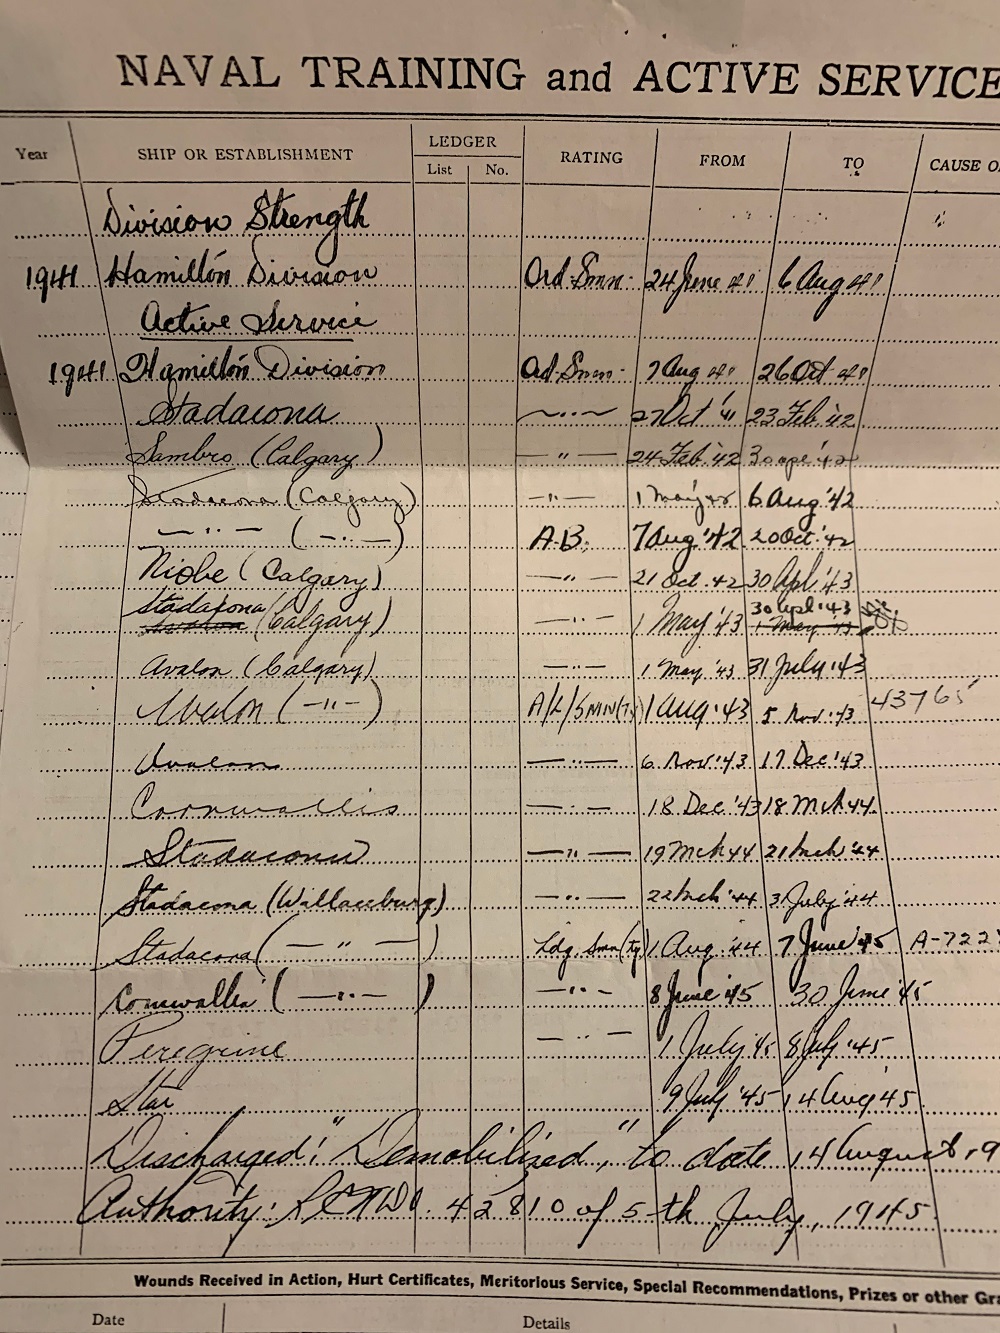 NAVAL TRAINING and ACTIVE SERVICE
Year SHIP OR ESTABLISHMENT LEDGER List No. RATING FROM TO CAUSE O
Division Strength
1941 Hamilton Division Ord. Smn. 24 June 41 6 Aug 41
Active Service
1941 Hamilton Division Ord. Smn. 7 Aug 41 26 Oct 41
Stadacona — " — 27 Oct '41 23 Feb. '42
Sambro (Calgary) — " — 24 Feb. '42 30 Apl '42
Stadacona (Calgary) — " — 1 May 42 6 Aug '42
— " — ( — " — ) A.B. 7 Aug '42 20 Oct. '42
Niobe (Calgary) — " — 21 Oct. 42 30 Apl '43
Stadacona
Avalon (Calgary) — " — 1 May '43 30 Apl '43
1 May '43
Avalon (Calgary) — " — 1 May '43 31 July '43
Avalon ( — " — ) A/L/SMN(Ty) 1 Aug '43 5 Nov. '43 43765
Avalon — " — 6 Nov. '43 17 Dec '43
Cornwallis — " — 18 Dec '43 18 Mch 44.
Stadacona — " — 19 Mch 44 21 Mch '44
Stadacona (Wallaceburg) — " — 22 Mch '44 31 July '44
Stadacona ( — " — ) Ldg. Smn (Ty) 1 Aug. '44 7 June '45 A-722
Cornwallis ( — " — ) — " — 8 June '45 30 June '45
Peregrine — " — 1 July '45 8 July '45
Star 9 July '45 14 Aug '45
Discharged: "Demobilized," to date 14 August, 19
Authority: 42810 of 5th July, 1945.
Wounds Received in Action, Hurt Certificates, Meritorious Service, Special Recommendations, Prizes or other Gra
Date Details